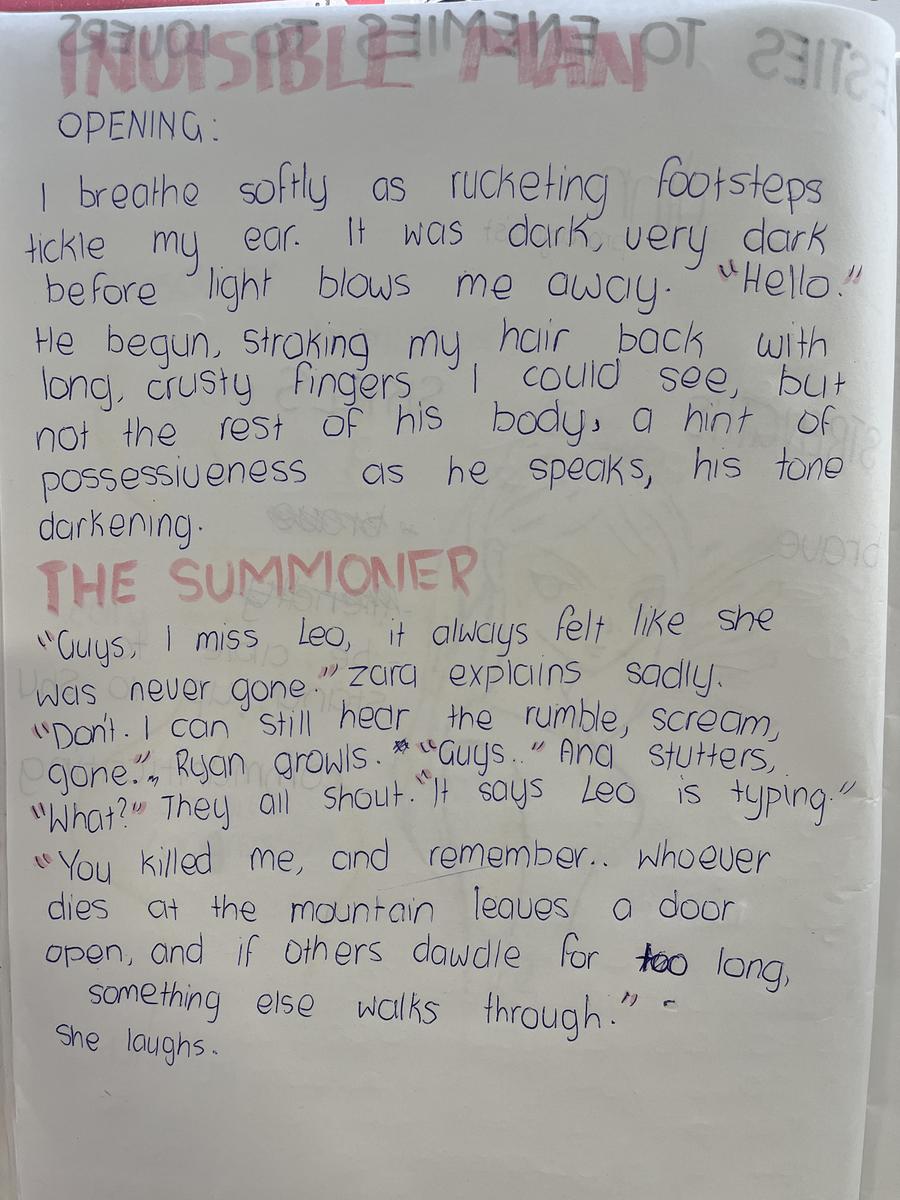 INVISIBLE MAN
OPENING:
I breathe softly as rucketing footsteps
tickle my ear. It was dark, very dark
before light blows me away. "Hello."
He begun, stroking my hair back with
long, crusty fingers I could see, but
not the rest of his body, a hint of
possessiveness as he speaks, his tone
darkening.
THE SUMMONER
"Guys, I miss Leo, it always felt like she
was never gone." Zara explains sadly.
"Don't. I can still hear the rumble, scream,
gone." Ryan growls. "Guys.." Ana stutters,
"What?" They all shout. "It says Leo is typing."
"You killed me, and remember.. whoever
dies at the mountain leaves a door
open, and if others dawdle for too long,
something else walks through."
She laughs.